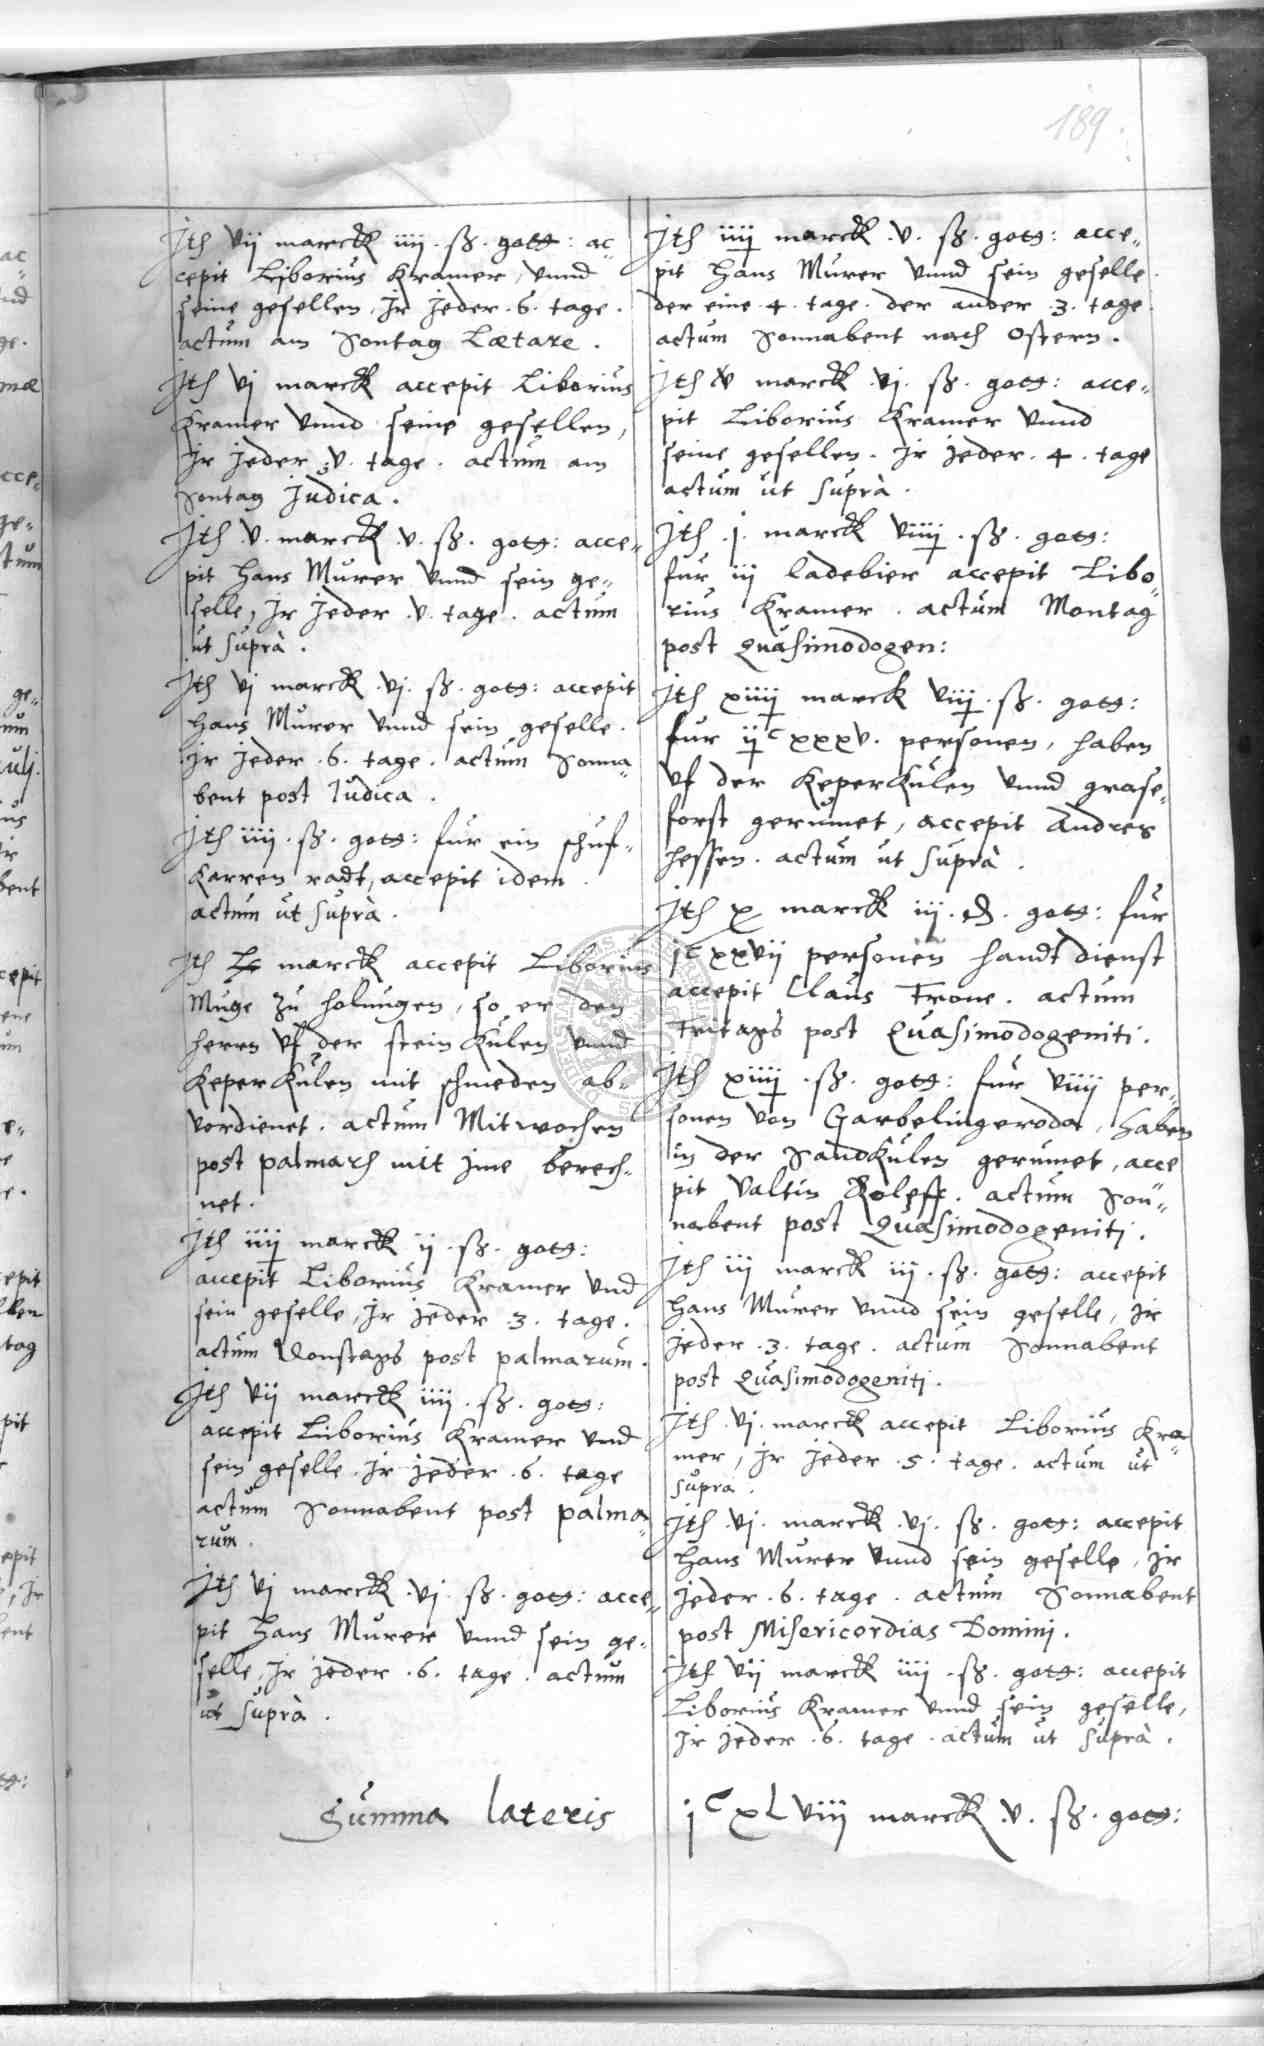 189.
Jtem vij marck iiij. ß. gots: ac-
cepit Liborius Kramer, vnnd
seine gesellen, Jr Jeder .6. tage.
actum am Sontag Lætare.
Jtem vj marck accepit Liborius
Kramer vnnd seine gesellen,
Jr Jeder .v. tage. actum am
Sontag Judica.
Jtem .v. marck .v. ß. gots: acce-
pit Hans Murer vnnd sein ge-
selle, Jr Jeder .v. tage. actum
ut suprà.
Jtem vj marck .vj. ß. gots: accepit
Hans Murer vnnd sein geselle.
Jr Jeder .6. tage. actum Sonna-
bent post Judica.
Jtem iiij. ß. gots: fur ein schuf-
karren radt, accepit idem.
actum ut suprà.
Jtem marck accepit Liborius
Muge zu holungen, so er den
herrn vf der steinkulen vnnd
Keperkulen mit schmeden ab-
verdienet. actum Mitwochen
post palmarum mit jme berech-
net.
Jtem iiij marck ij. ß. gots:
accepit Liborius Kramer vnd
sein geselle, Jr Jeder .3. tage.
actum Donstags post palmarum.
Jtem vij marck iiij. ß. gots:
accepit Liborius Kramer vnd
sein geselle. Jr Jeder .6. tage
actum Sonnabent post palma-
rum.
Jtem vj marck .vj. ß. gots: acce-
pit Hans Murer vnnd sein ge-
selle, Jr Jeder .6. tage. actum
ut suprà.
Jtem iiij marck .v. ß. gots: acce-
pit Hans Murer vnnd sein geselle.
der eine .4. tage. der ander .3. tage.
actum Sonnabent nach Ostern.
Jtem v marck .vj. ß. gots: acce-
pit Liborius Kramer vnnd
seine gesellen. Jr Jeder .4. tage
actum ut suprà.
Jtem .j. marck viiij. ß. gots:
fur iij ladebier accepit Libo-
rius Kramer. actum Montag
post Quasimodogen:
Jtem xiiij marck viij. ß. gots:
fur ij c xxxv. personen, haben
vf der Keperkulen vnnd grase-
forst gerumet, accepit Andres
Hessen. actum ut suprà.
Jtem x marck iij. d. gots: fur
j c xxvij personen handt dienst
accepit Claus Trone. actum
Fritags post Quasimodogeniti.
Jtem xiiij. ß. gots: fur viiij per-
sonen von Garbelingeroda, haben
in der Sandkulen gerumet, acce
pit Valtin Roleff. actum Son-
nabent post Quasimodogeniti.
Jtem iij marck iij. ß. gots: accepit
Hans Murer vnnd sein geselle, Jr
Jeder .3. tage. actum Sonnabent
post Quasimodogeniti.
Jtem .vj. marck accepit Liborius Kra-
mer, Jr Jeder .5. tage. actum ut
supra.
Jtem .vj. marck .vj. ß. gots: accepit
Hans Murer vnnd sein geselle, Jr
Jeder .6. tage. actum Sonnabent
post Misericordias Domini.
Jtem vij marck iiij. ß. gots: accepit
Liborius Kramer vnnd sein geselle,
Jr Jeder .6. tage. actum ut suprà.
Summa lateris j c xLviij marck .v. ß. gots: